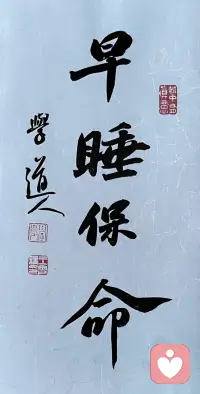 早睡保命
學道人